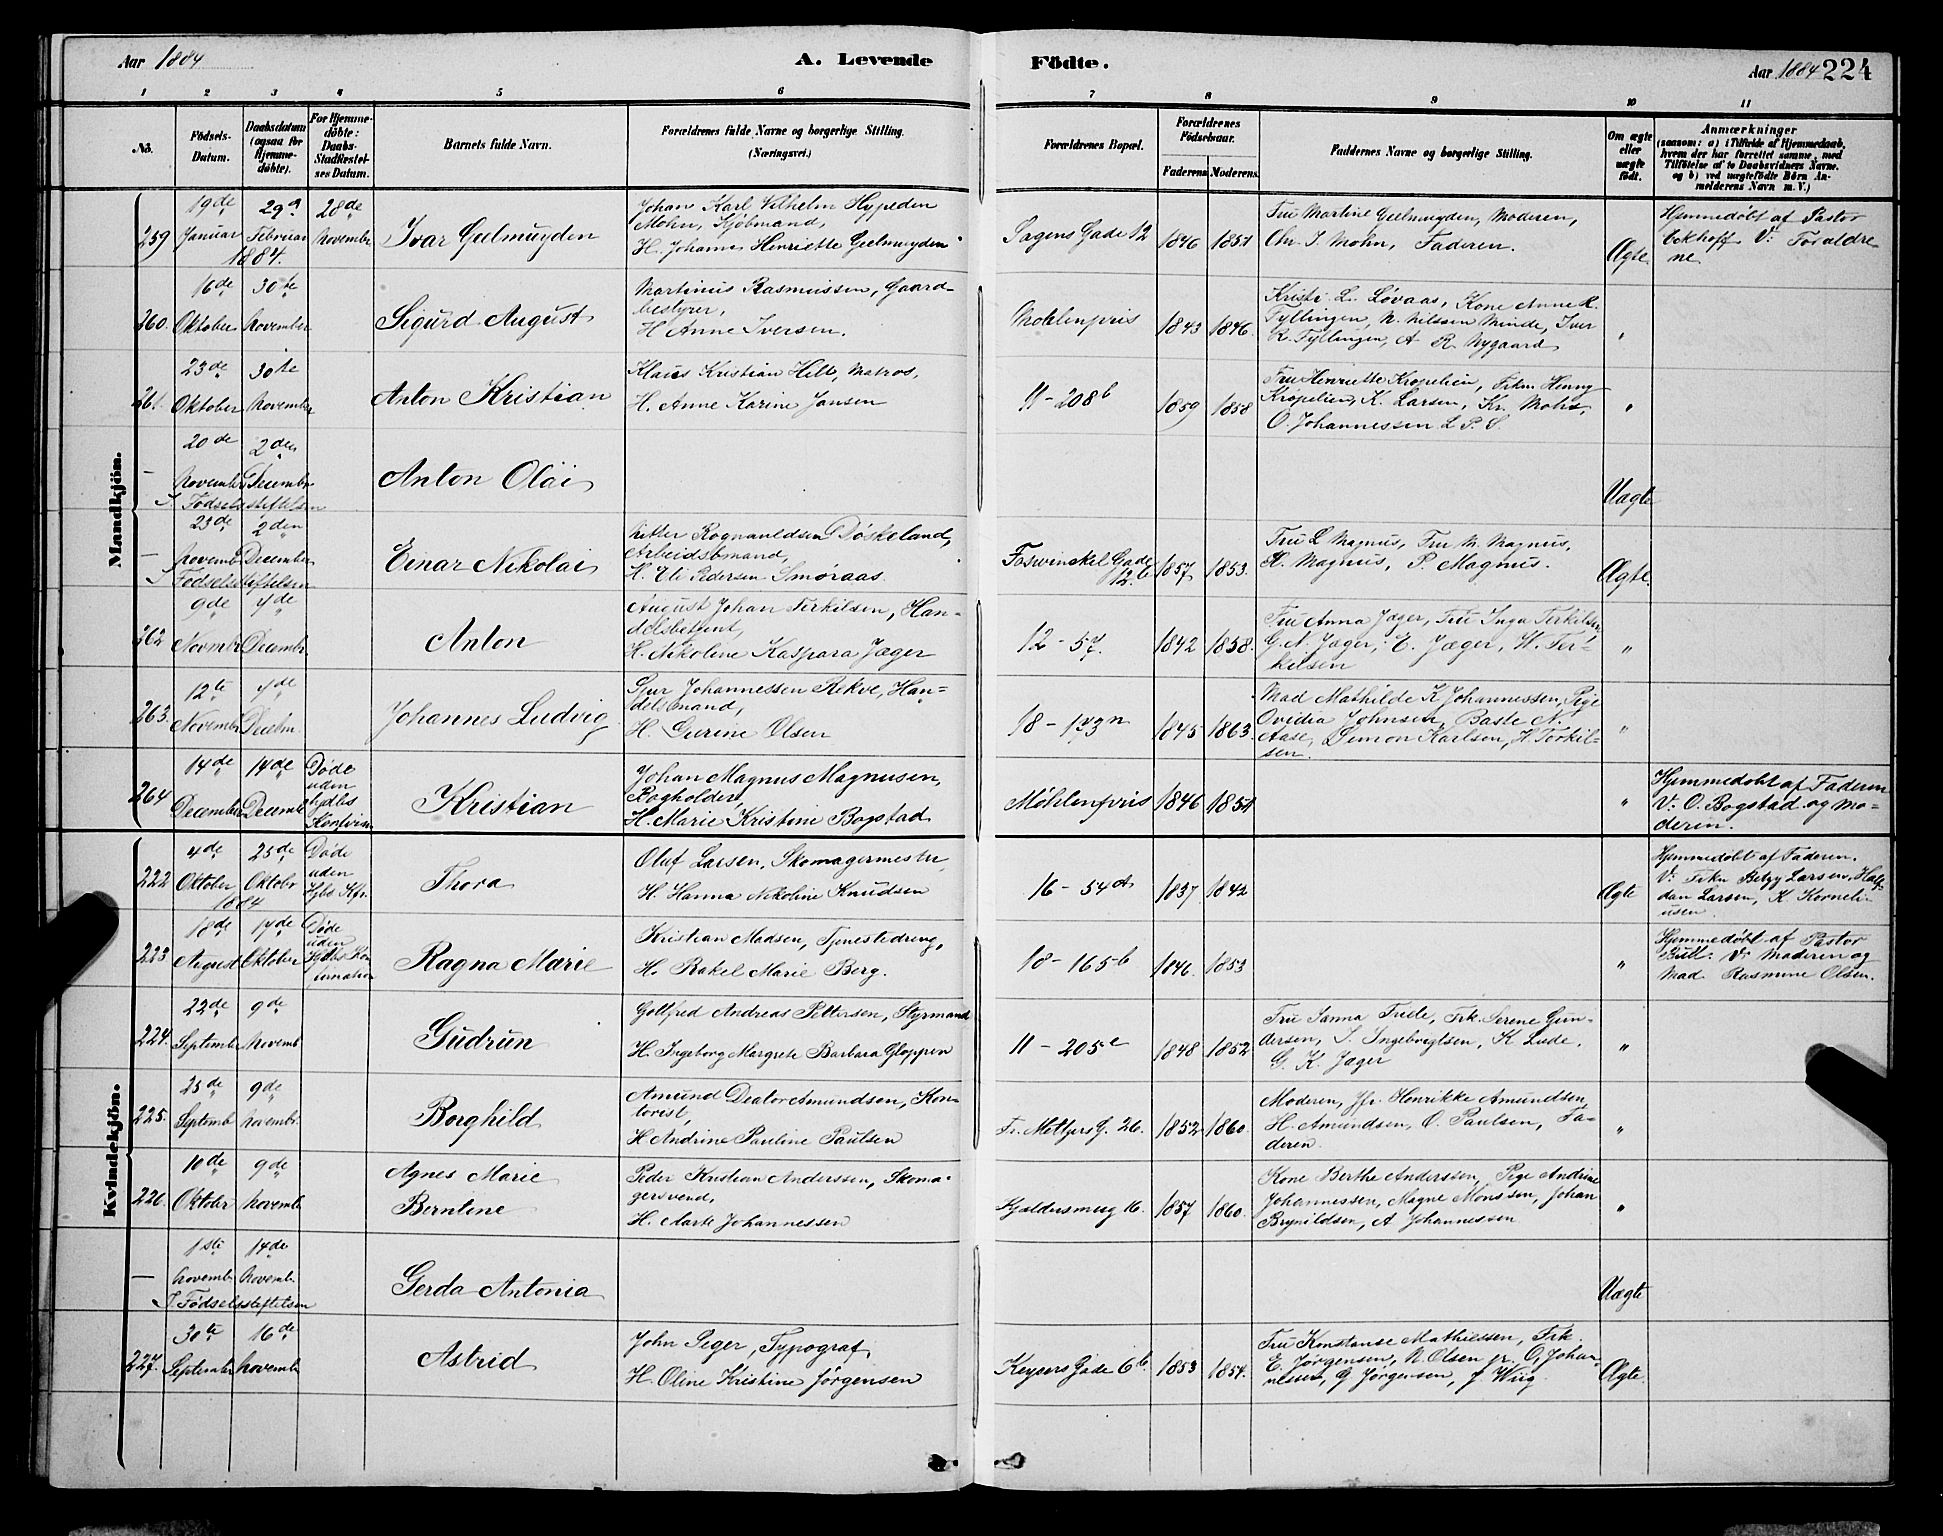 Aar 1884 A. Levende Födte. Aar 1884 224
1 2 3 4 5 6 7 8 9 10 11
No. Födsels-Datum. Daabsdatum (ogsaa for Hjemmedöbte). For Hjemmedöbte: Daabs-Stadfæstelses Datum. Barnets fulde Navn. Forældrenes fulde Navne og borgerlige Stilling. (Næringsvei.) Forældrenes Bopæl. Forældrenes Födselsaar. Faderens Moderens Faddernes Navne og borgerlige Stilling. Om ægte eller uægte födt. Anmærkninger (saasom: a) i Tilfælde af Hjemmedaab, hvem der har forrettet samme, med Tilföielse af to Daabsvidners Navne. og b) ved uægtefödte Börn Anmelderens Navn m. V.)
Mandkjön.
259 19de Januar 29de Februar 1884. 28de November Ivar Geelmuyden
Johan Karl Vilhelm Hypeden
Mohn, Kjøbmand,
H. Johanne Henriette Geelmuyden
Sagens Gade 12 1846 1851
Fru Martine Geelmuyden, Moderen,
Chr. I. Mohn, Faderen.
Ægte.
Hjemmedøbt af Pastor
Eckhoff V: Forældre-
ne
260. 16de Oktober 30te November Sigurd August
Martinus Rasmussen, Gaard-
bestyrer,
H. Anne Iversen.
Møhlenpris 1843 1846.
Kristi L. Løvaas, Kone Anne R.
Fyllingen, N. Nilssen Minde, Iver
R. Fyllingen, A R Nygaard
"
261. 23de Oktober 30te November Anton Kristian
Klaus Kristian Hill, Matros,
H. Anne Karine Jansen
11-208b 1859 1858
Fru Henriette Krøpelien, Frkn Henny
Krøpelien, K. Larsen, Kr. Mohr,
O. Johannessen L. P. S.
"
— 20de November 2den December Anton Olai Uægte
I Fødselsstiftelsen
— 23de November 2den December Einar Nikolai
Rognvaldsen Døskeland,
Arbeidsmand,
H. Eli Pedersen Smøraas.
Foswinckel Gade
12b 1857 1853.
Fru L Magnus, Fru M. Magnus,
H. Magnus, P. Magnus.
Ægte.
I Fødselsstiftelsen
262 9de Novembr 4de Decembr. Anton
August Johan Terkilsen, Han-
delsbetjent,
H. Nikoline Kaspara Jæger
12-57. 1842 1858.
Fru Anna Jæger, Fru Inga Terkilsen,
G. N. Jæger, E. Jæger, W. Ter-
kilsen
"
263. 12te Novembr 4de Decbm. Johannes Ludvig
Sjur Johannessen Rekve, Han-
delsmand,
H. Gurine Olsen
18-173n 1845 1863.
Mad Mathilde K Johannessen, Pige
Ovidia Johnsen, Baste N.
Aase, Simon Karlsen, H. Torkil-
sen.
"
264 14de December 14de Decembr Døde uden Kristian
Johan Magnus Magnusen,
Bogholder,
H. Marie Kristine Bogstad
Møhlenpris 1846 1851
"
Hjemmedøbt af Faderen
V: O. Bogstad og Mo-
deren.
Kvindekjön.
222 4de Oktober 25de Oktobr 1884 Døde uden Thora
Oluf Larsen, Skomagermester
H. Hanna Nikoline Knudsen
16-54A 1837 1842
Ægte
Hjemmedøbt af Faderen.
V: Frkn Betzy Larsen, Half-
dan Larsen, K. Korneli-
usen
223 18de August 14de Oktober Døde uden Ragna Marie
Kristian Madsen, Tjenestedreng,
H. Rakel Marie Berg.
18-165b 1846. 1853
"
Hjemmedøbt af Pastor
Bull. V: Moderen og
Mad. Rasmine Olsen.
224. 22de Septembr 9de Novemb Gudrun
Gottfred Andreas Pettersen, Styrmand
H. Ingeborg Margrete Barbara Gloppen
11-205e 1848 1852
Fru Sanna Friele, Frk. Serene Gun-
dersen, S. Ingebrigtsen, K Lude,
G. K. Jæger
"
225. 25de Septemb 9de Novembr. Borghild
Amund Deator Amundsen, Kon-
torist,
H Andrine Pauline Paulsen
Fr. Meltzers G. 26. 1852 1860.
Moderen, Jfr. Henrikke Amundsen,
H. Amundsen, O. Paulsen, Fa-
deren.
"
226. 10de Oktober 9de Novemb. Agnes Marie
Berntine
Peder Kristian Anderssen, Skoma-
gersvend,
H. Marte Johannessen
Gjeldersmug 16. 1857 1860.
Kone Berthe Anderssen, Pige Andrine
Johannessen, Magne Monssen, Johan
Brynildsen, A Johannessen
"
— 1ste Novemb 14de Novemb. Gerda Antonia Uægte
I Fødselsstiftelsen
227. 30te September 16de November Astrid
John Seger, Typograf,
H. Oline Kristine Jørgensen
Keysers Gade 6b. 1853 1854.
Fru Konstanse Mathiessen, Frk.
E. Jørgensen, N. Olsen jr. O. Johan-
nesen, G Jørgensen, J. Wiig.
Ægte.